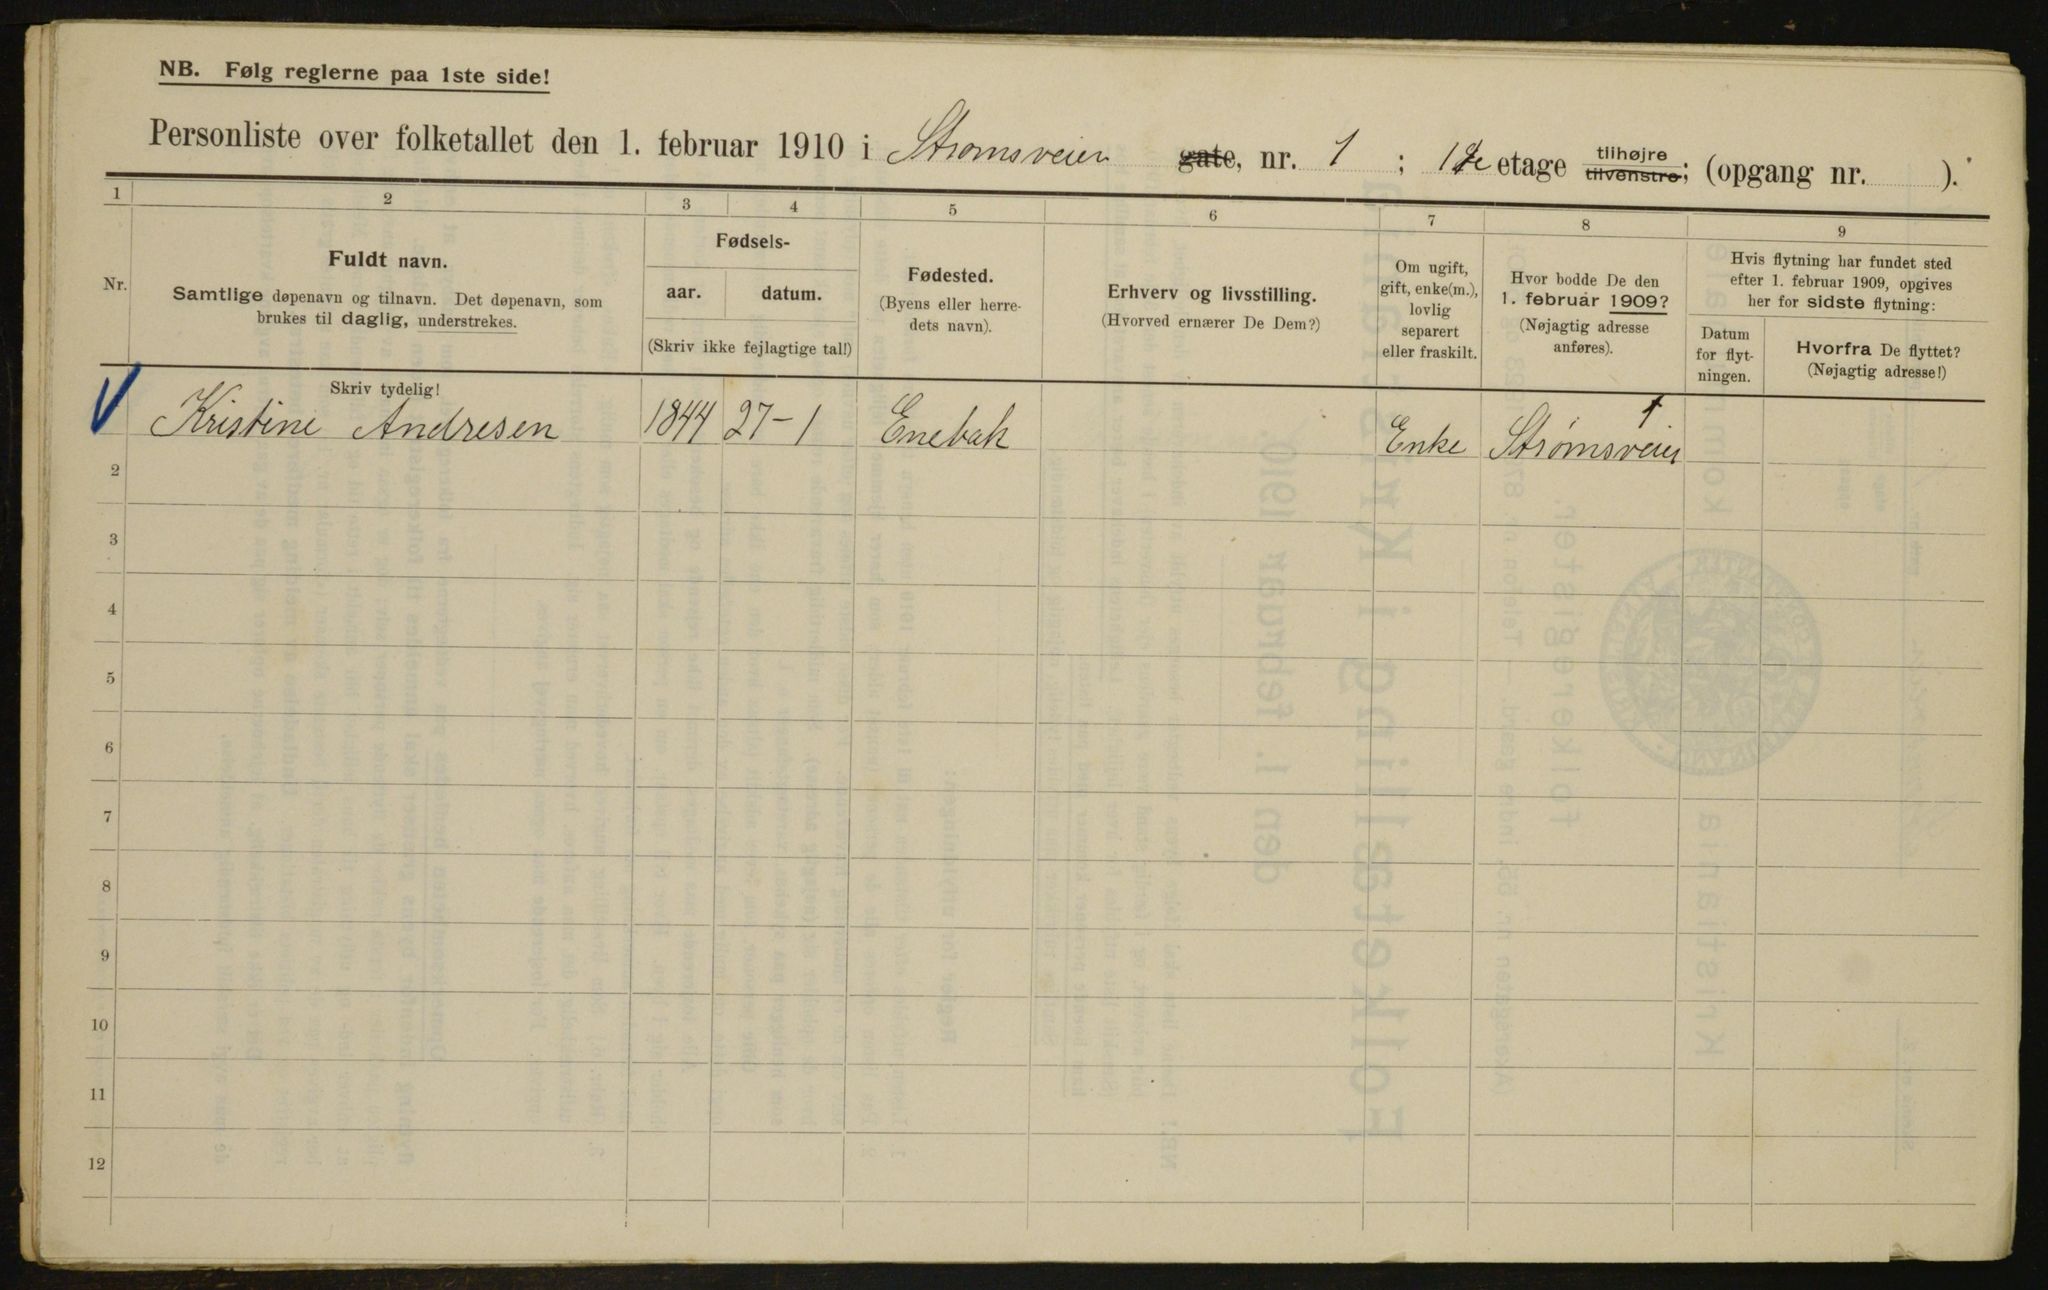 NB. Følg reglerne paa 1ste side!
Personliste over folketallet den 1. februar 1910 i Strømsveien gate, nr. 1 ; 1ste etage tilhøjre tilvenstre; (opgang nr. ).
1 2 3 4 5 6 7 8 9
Nr.
Fuldt navn.
Samtlige døpenavn og tilnavn. Det døpenavn, som
brukes til daglig, understrekes.
Skriv tydelig!
Fødsels-
aar. datum.
(Skriv ikke fejlagtige tal!)
Fødested.
(Byens eller herre-
dets navn).
Erhverv og livsstilling.
(Hvorved ernærer De Dem?)
Om ugift,
gift, enke(m.),
lovlig
separert
eller fraskilt.
Hvor bodde De den
1. februar 1909?
(Nøjagtig adresse
anføres).
Hvis flytning har fundet sted
efter 1. februar 1909, opgives
her for sidste flytning:
Datum
for flyt-
ningen.
Hvorfra De flyttet?
(Nøjagtig adresse!)
Kristine Andresen 1844 27-1 Enebak Enke Strømsveien 1
2
3
4
5
6
7
8
9
10
11
12